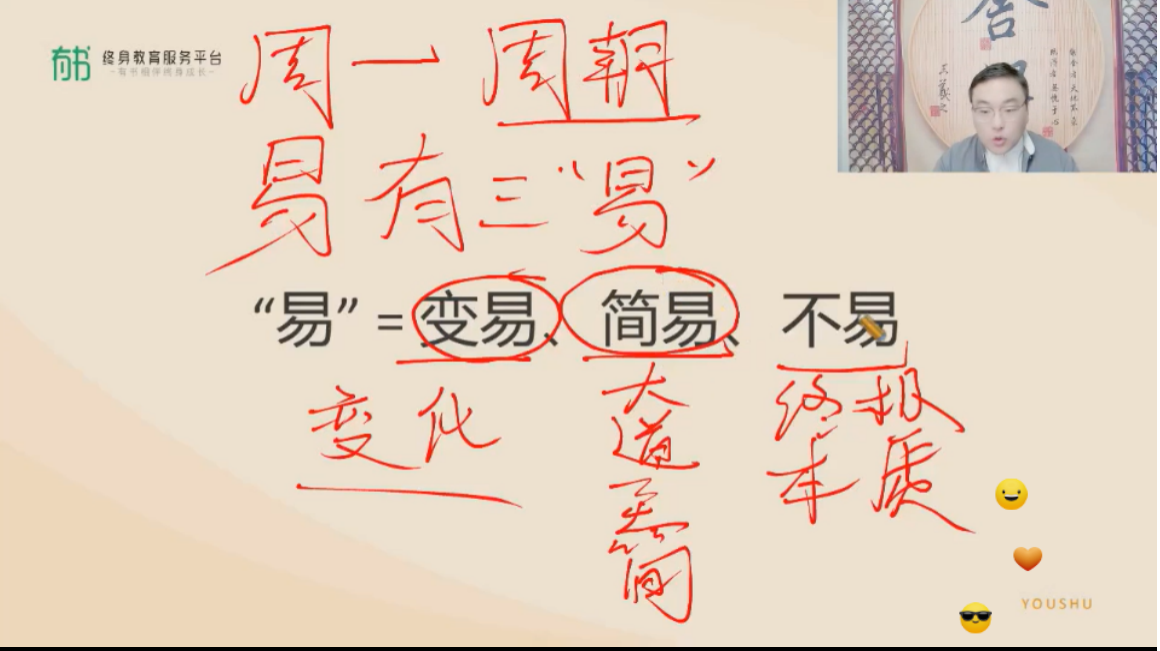 有书 终身教育服务平台
-有书陪伴终身成长-
周一 周朝
易有三“易”
“易”= 变易、简易、不易
变化
大道至简
终极
本质
舍得
王羲之
YOUSHU